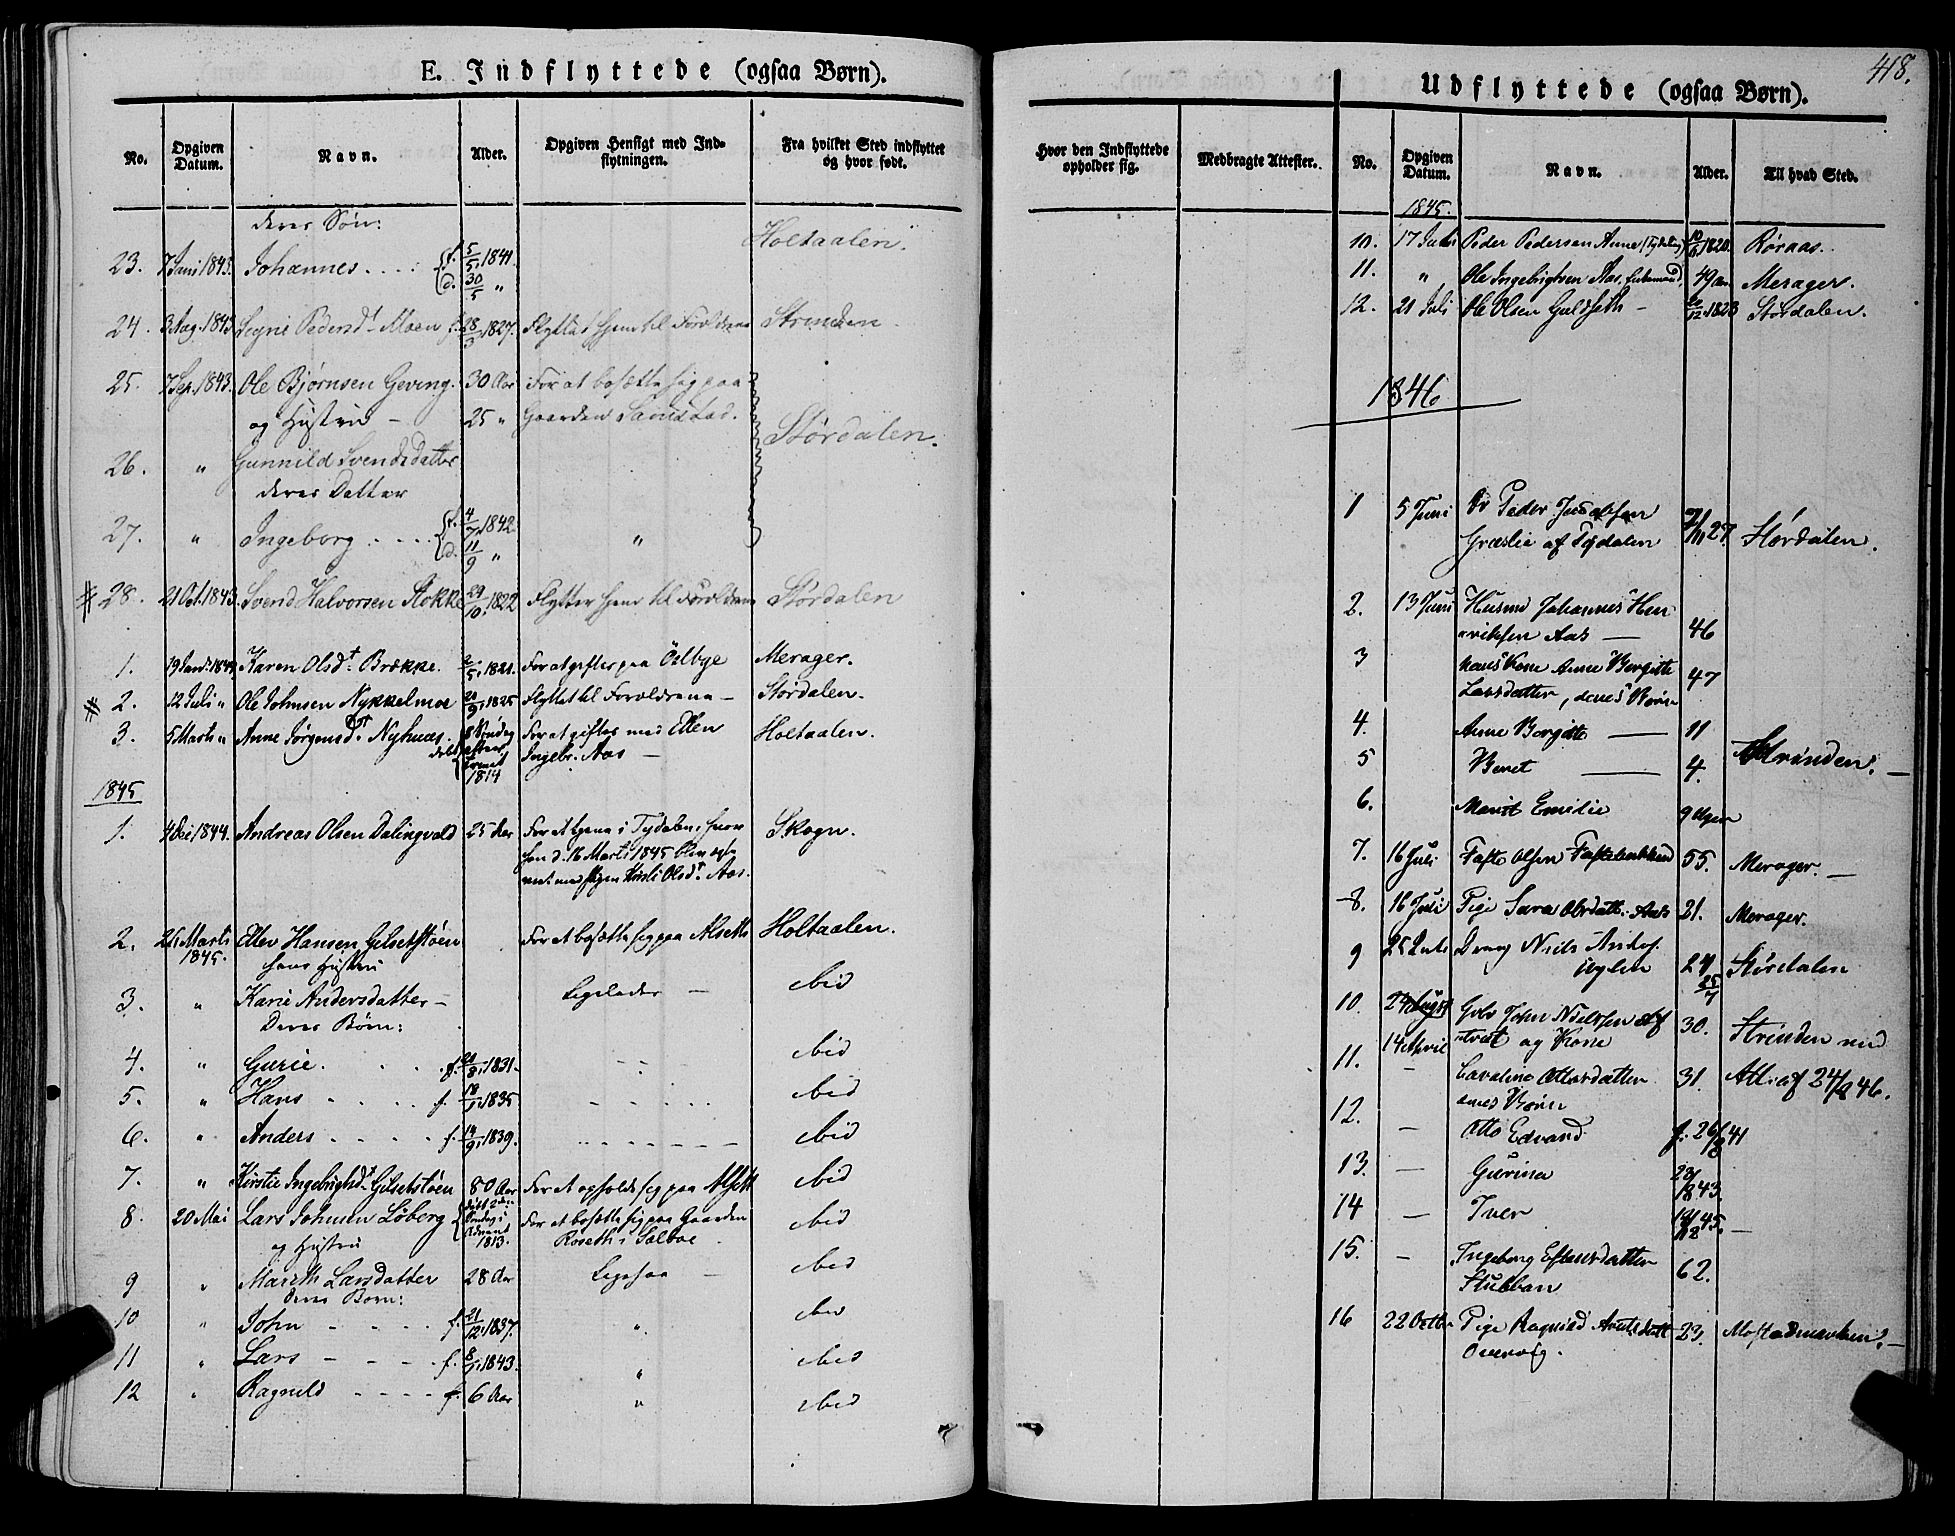 E. Indflyttede (ogsaa Børn).
No. Opgiven Datum. Navn. Alder. Opgiven Hensigt med Indflytningen. Fra hvilket Sted indflyttet og hvor født.
deres Søn:
23. 7 Juni 1843. Johannes . . . . f. 5/5 1841. d. 30/5 " Holtaalen.
24. 3 Aug. 1843 Pedersdt Moen f. 28/3 1827. Flyttet hjem til Forældrene Strinden
25. 7 Sep. 1843. Ole Bjørnsen Geving. 30 Aar For at bosætte sig paa
og Hustru - 25 " Gaarden Størdalen.
26. " Gunnild Svendsdatter "
deres Datter
27. " Ingeborg . . . . f. 4/7 1842 d. 11/9 " "
# 28. 21 Oct. 1843. Svend Halvorsen Stokke 29/10 1822 Flytter hjem til Forældrene Størdalen
1. 19 Janr. 1844 Karen Olsdt. Brække. 2/5 1821. For at giftes paa Merager.
# 2. 12 Juli " Ole Johnsen Nykkelmoe 20/9 1825 Flyttet til Forældrene - Størdalen.
3. 5 Marts " Anne Jørgensdt. Nyhuus. For at giftes med Ellen Holtaalen.
døbt 1814 Ingebr. Aas -
1845
1. 4 1844. Andreas Olsen Dalingvold 25 Aar For at tjene i Tydalen, hvor Skogn.
han d. 16 Marts 1845
Kirsti Olsdt. Aas.
2. 26 Marts 1845. Ellev Hansen Gilsetstøen For at bosætte sig paa Alseth Holtaalen.
hans Hustru
3. " Karie Andersdatter - Ligeledes - ibid
Deres Børn:
4. " Gurie. . . . f. 20/8 1831. ibid
5. " Hans - . . . . f. 18/1 1835 ibid
6. " Anders . . . . f. 14/9 1839. ibid
7. " Kirstie Ingebrigtsdt. Gilsetstøen 80 Aar For at opholde sig paa Alseth ibid
8. 20 Mai Lars Johnsen Løberg døbt 2den Søndag i Advent 1813. For at bosætte sig paa Gaarden ibid
og Hustru Roseth i Selboe.
9 " Mareth Larsdatter 28 Aar Ligesaa - ibid
deres Børn:
10 " John - - - - f. 21/12 1837. " ibid
11 " Lars - - - - f. 8/1 1843. " ibid
12 " Ragnild - - - - f. 6 Aar " ibid
418.
Udflyttede (ogsaa Børn).
Hvor den Indflyttede opholder sig. Medbragte Attester. No. Opgiven Datum. Navn. Alder. Til hvad Sted.
1845.
10. 17 Juli Peder Pedersen Aune (Tydalen) 1820. Røraas.
11. " Ole Ingebrigtsen Aas, Enkemand, 49 Merager.
12. 21 Juli Ole Olsen Guldseth - 20/12 1823 Størdalen.
1846
1 5 Juni Peder Jacobsen
Græslie af Tydalen 27. Størdalen.
2. 13 Juni Husmd Johannes Hen-
riksen Aas - 46
3 hans Kone Anne Borgitte
Larsdatter, deres Børn 47
4. Anne Borgitte - 11
5 Beret - 4. Strinden. -
6. Marit Emilie 9 Uger
7. 16 Juli Faste Olsen 55. Merager. -
8. 16 Juli Pige Sara Olsdatt. Aas 21. Merager.
9 25 Juli Dreng Niels
24 25/7 Størdalen
10. 24 August John Nielssen
og Kone 30. Strinden med
11. 14 April Caroline Ottersdatter 31. Att. af 24/8 46.
Børn
12. - Otto Edvard f. 26/8 41
13. - Gurina 28/ 43.
14 - Iver 45. -
15. - Ingeborg Estensdatter
Stubban 62.
16 22 Octbr Pige Ragnild Arntsdatt 23. Mostadmarken. -
Overvig.